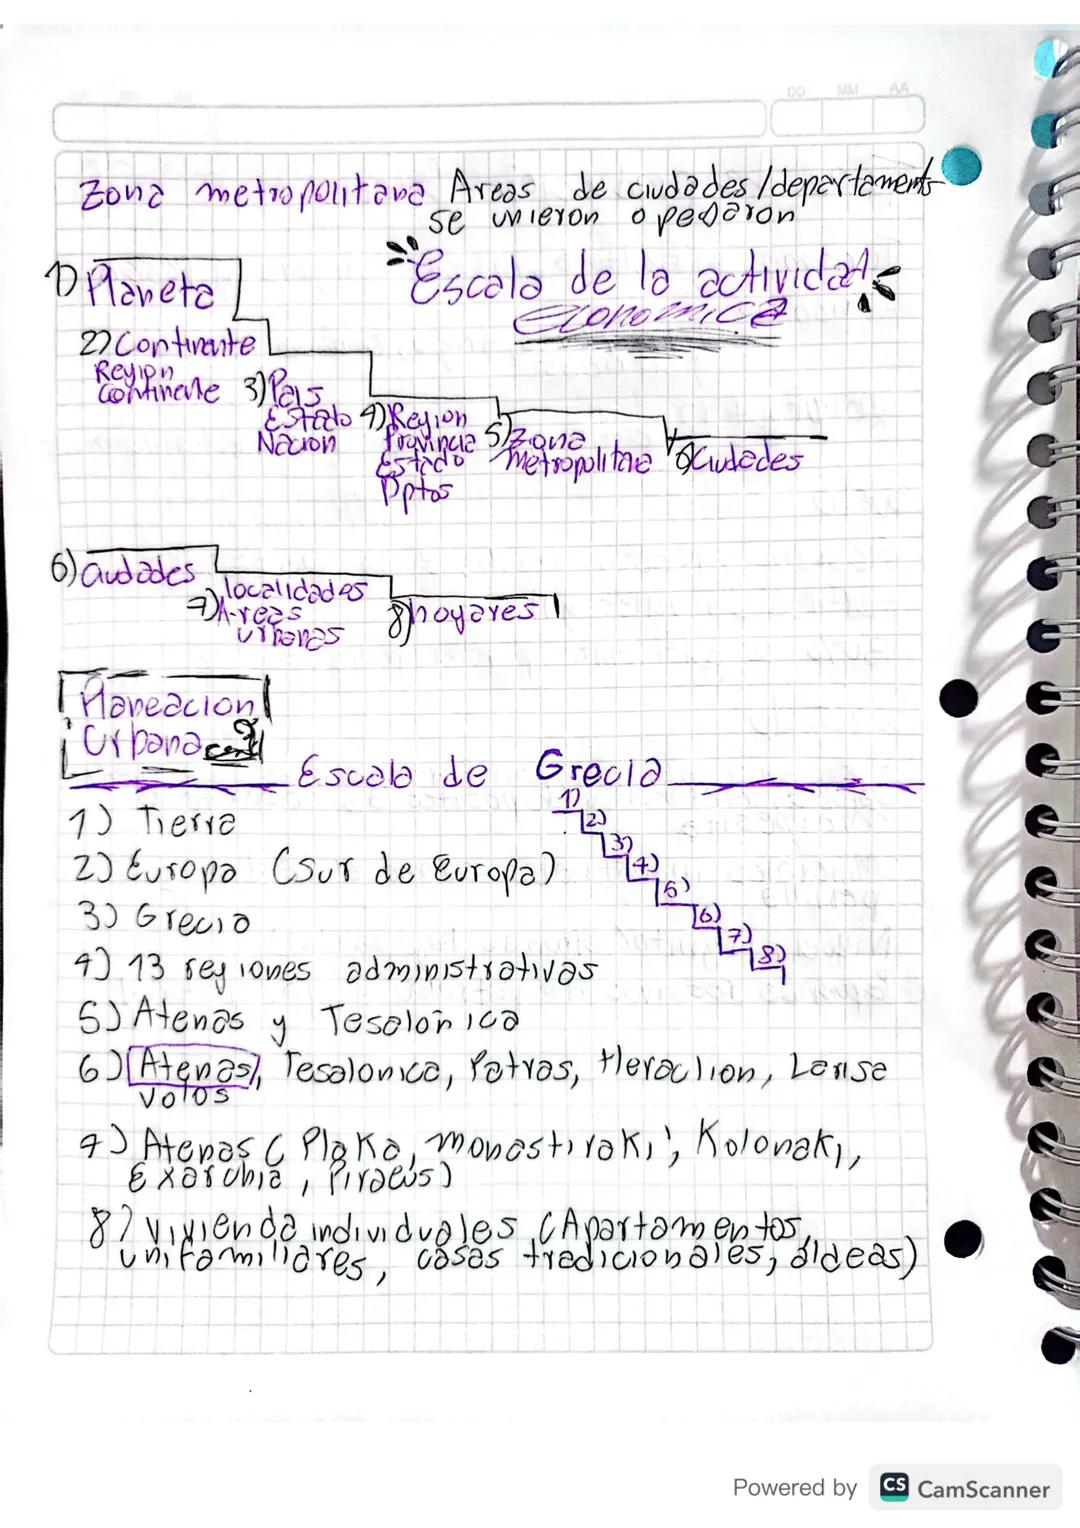 DD MM AA
Zona metropolitana Areas de ciudades/departaments
se unieron o pegaron
Escala de la actividad
economica
1) Planeta
2) Continente
Region
Continente
3) Pais
Estado
Nacion
4) Region
Provincia
Estado
Dptos
5) Zona
Metropolitana
6) Ciudades
6) Ciudades
7) localidades
Areas
urbanas
8) hogares
Planeacion
Urbana
Escala de Grecia
1)
2)
3)
4)
5)
6)
7)
8)
1) Tierra
2) Europa (Sur de Europa)
3) Grecia
4) 13 regiones administrativas
5) Atenas y Tesalonica
6) Atenas, Tesalonica, Patras, Heraclion, Larisa
Volos
7) Atenas (Plaka, monastiraki, Kolonaki,
Exarchia, Piraeus)
8) vivienda individuales (Apartamentos,
unifamiliares, casas tradicionales, aldeas)
Powered by CS CamScanner